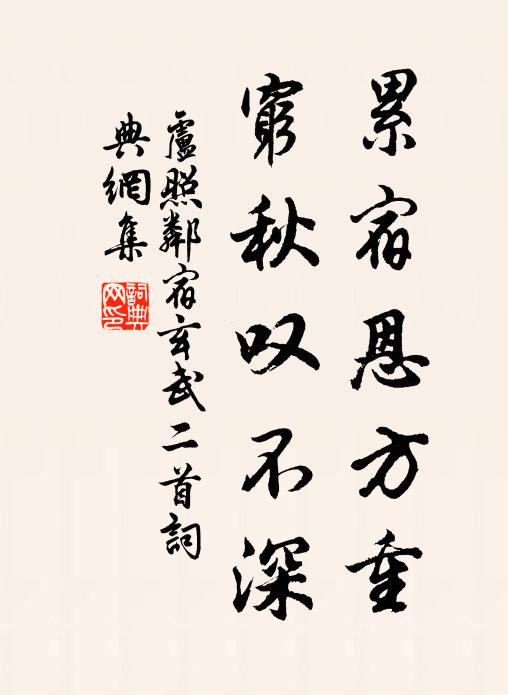 累宿恩方重
窮秋叹不深
盧照鄰宿玄武二首詞
典網集
詞典
网印